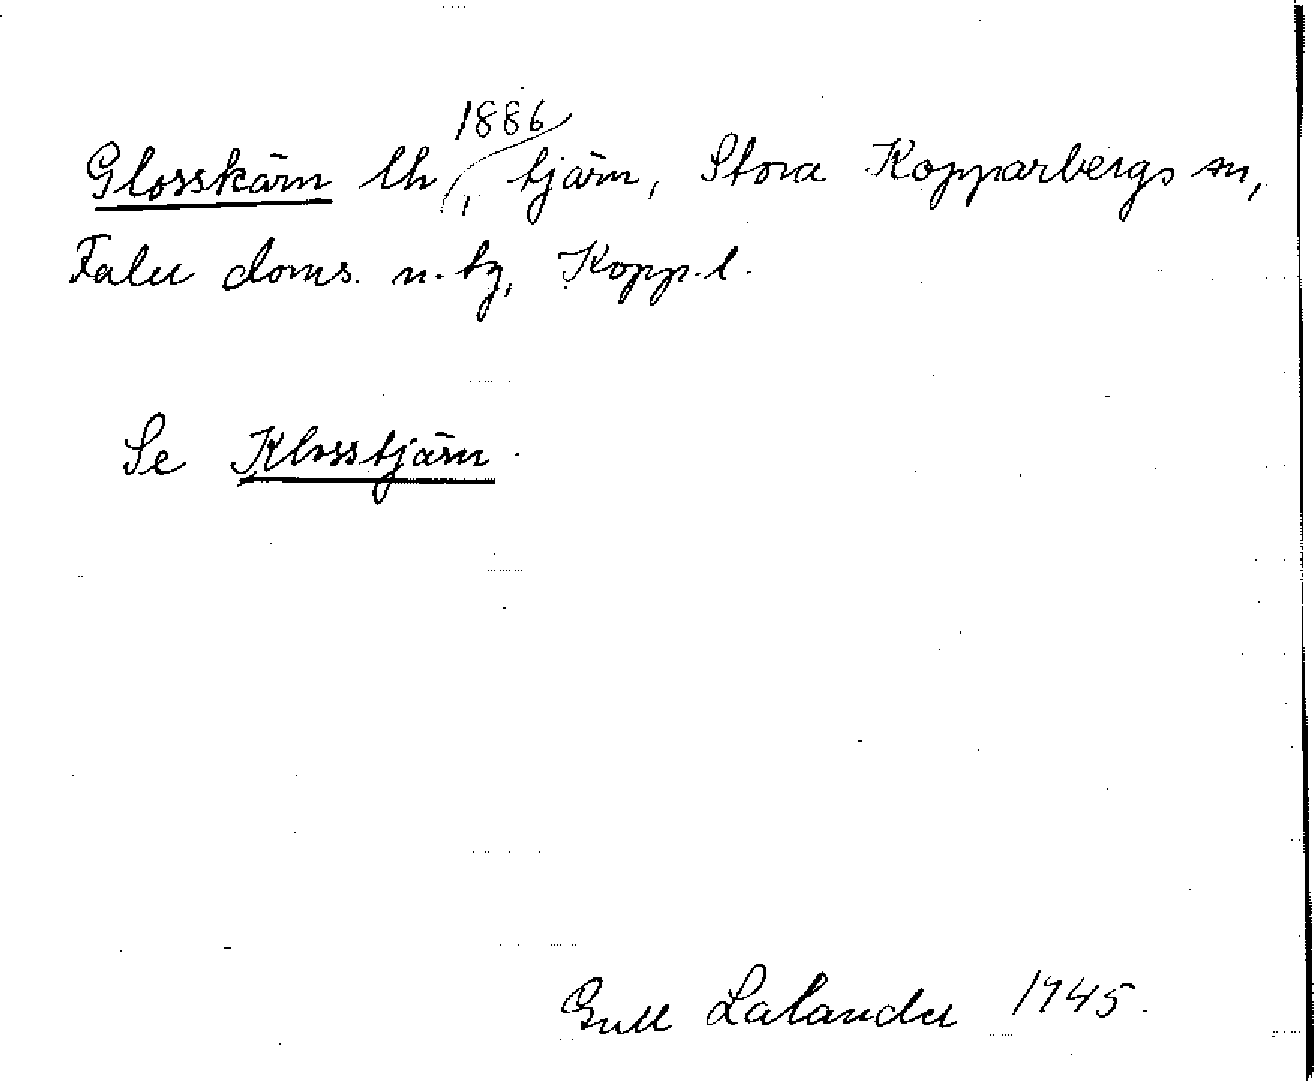 Glosskärn lh 1886, tjärn, Stora Kopparbergs sn,
Falu doms. n. tg, Kopp. l.
Se Klosstjärn.
Gull Lalander 1945.